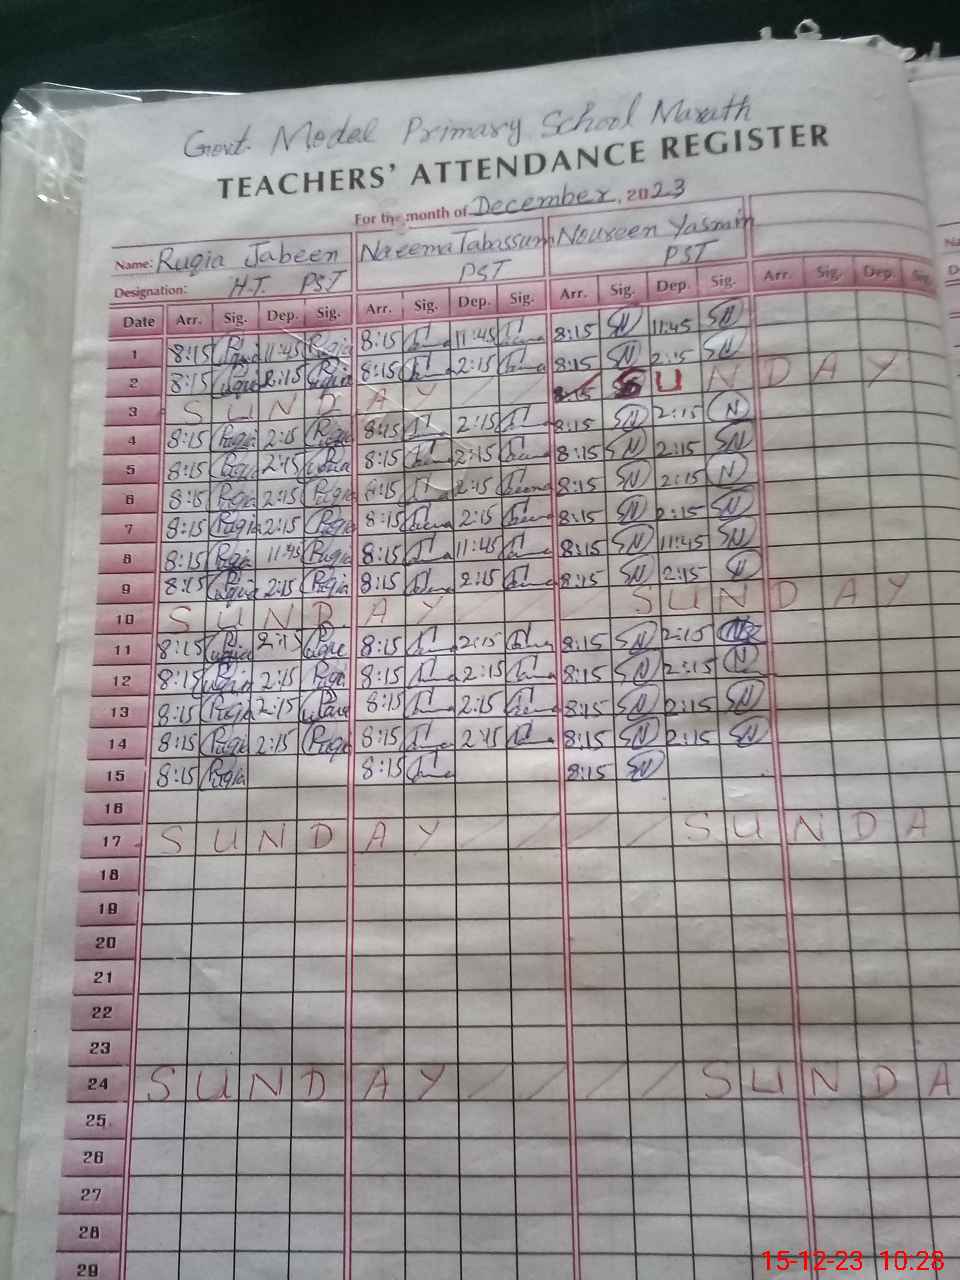 Govt. Model Primary School Marath
TEACHERS' ATTENDANCE REGISTER
For the month of December, 2023
Name: Ruqia Jabeen Naeema Tabassum Noureen Yasmin
Designation: H.T. PST PST PST
Date Arr. Sig. Dep. Sig. Arr. Sig. Dep. Sig. Arr. Sig. Dep. Sig. Arr. Sig. Dep. Sig.
1 8:15 Ruqia 11:45 Ruqia 8:15 11:45 8:15 SN 11:45 SN
2 8:15 Ruqia 2:15 Ruqia 8:15 2:15 8:15 SN 2:15 SN
3 S U N D A Y 8:15 S U N D A Y
4 8:15 Ruqia 2:15 Ruqia 8:15 2:15 8:15 SN 2:15 N
5 8:15 Ruqia 2:15 Ruqia 8:15 2:15 8:15 SN 2:15 SN
6 8:15 Ruqia 2:15 Ruqia 8:15 2:15 8:15 SN 2:15 N
7 8:15 Ruqia 2:15 Ruqia 8:15 2:15 8:15 SN 2:15 SN
8 8:15 Ruqia 11:45 Ruqia 8:15 11:45 8:15 SN 11:45 SN
9 8:15 Ruqia 2:15 Ruqia 8:15 2:15 8:15 SN 2:15 N
10 S U N D A Y S U N D A Y
11 8:15 Ruqia 2:15 8:15 2:15 8:15 SN 2:15
12 8:15 Ruqia 2:15 Ruqia 8:15 2:15 8:15 SN 2:15 N
13 8:15 Ruqia 2:15 8:15 2:15 8:15 SN 2:15 SN
14 8:15 Ruqia 2:15 Ruqia 8:15 2:15 8:15 SN 2:15 SN
15 8:15 Ruqia 8:15 8:15 SN
16
17 S U N D A Y S U N D A
18
19
20
21
22
23
24 S U N D A Y S U N D A
25
26
27
28
29
15-12-23 10:28